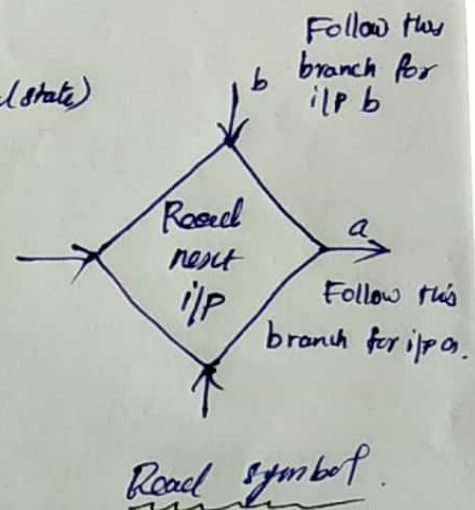 Follow this
branch for
i/p b
(state)
b
Read
next
i/p
a
Follow this
branch for i/p a.
Read symbol.